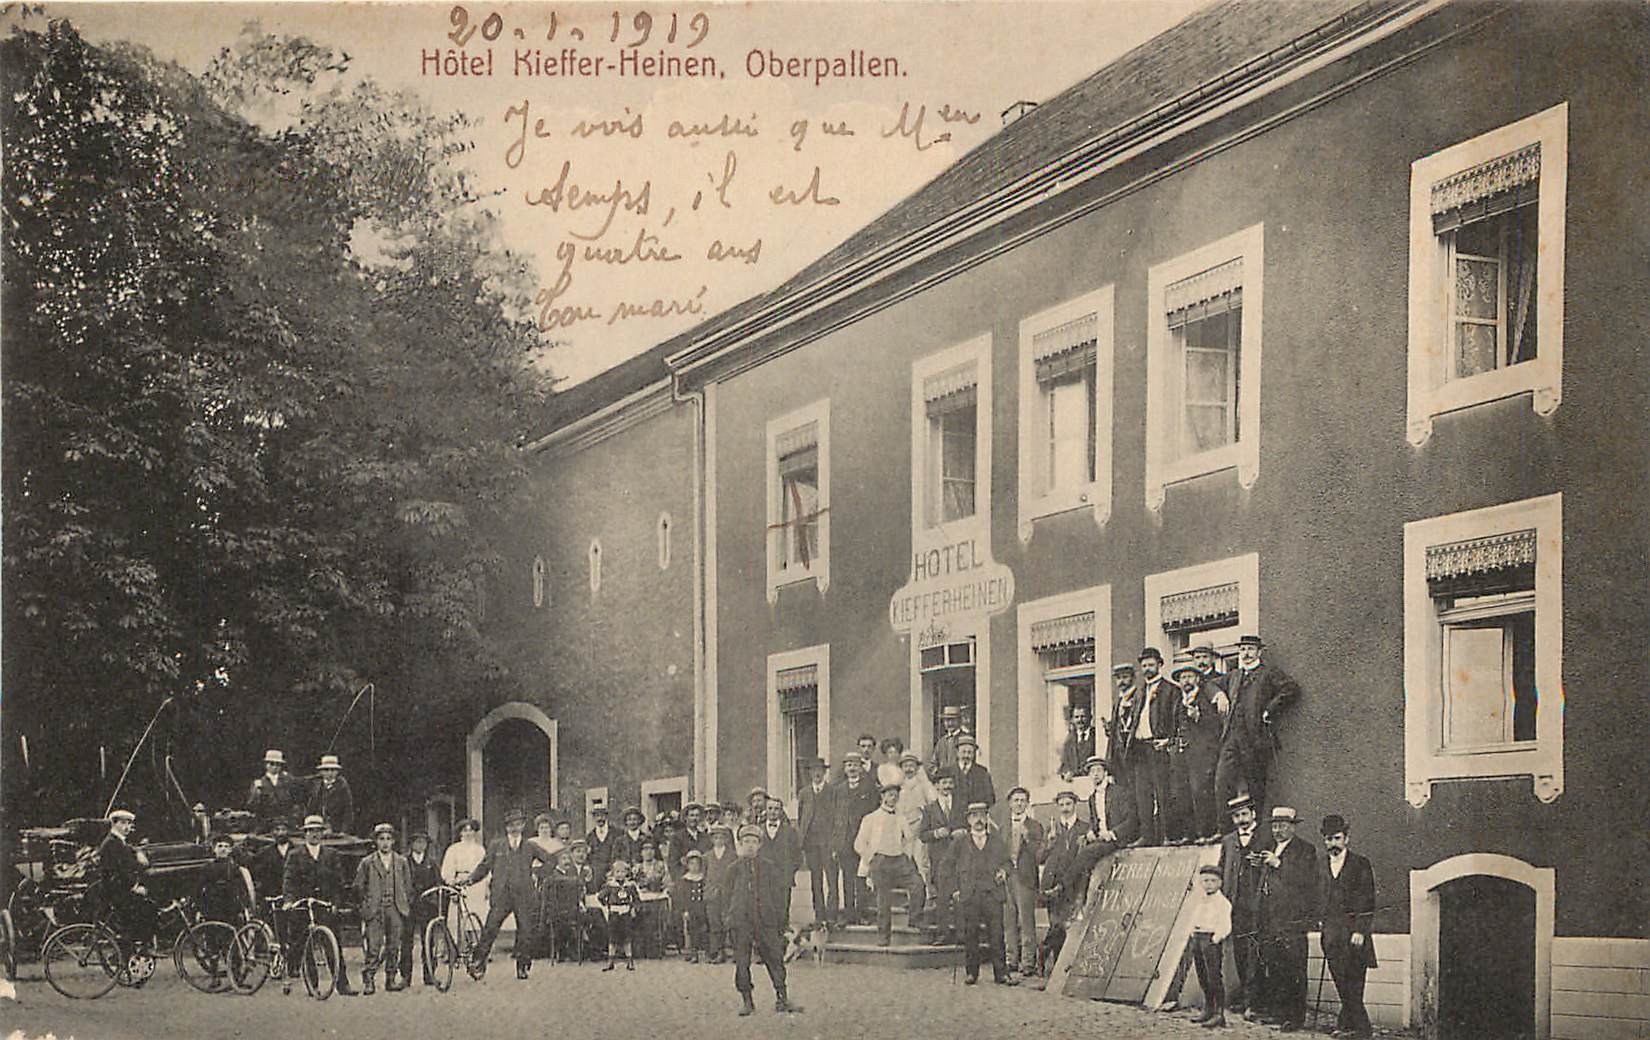 20.1.1919
Hôtel Kieffer-Heinen, Oberpallen.
Je vois aussi que
temps, il est
quatre ans
Ton mari
HOTEL
KIEFFERHEINEN